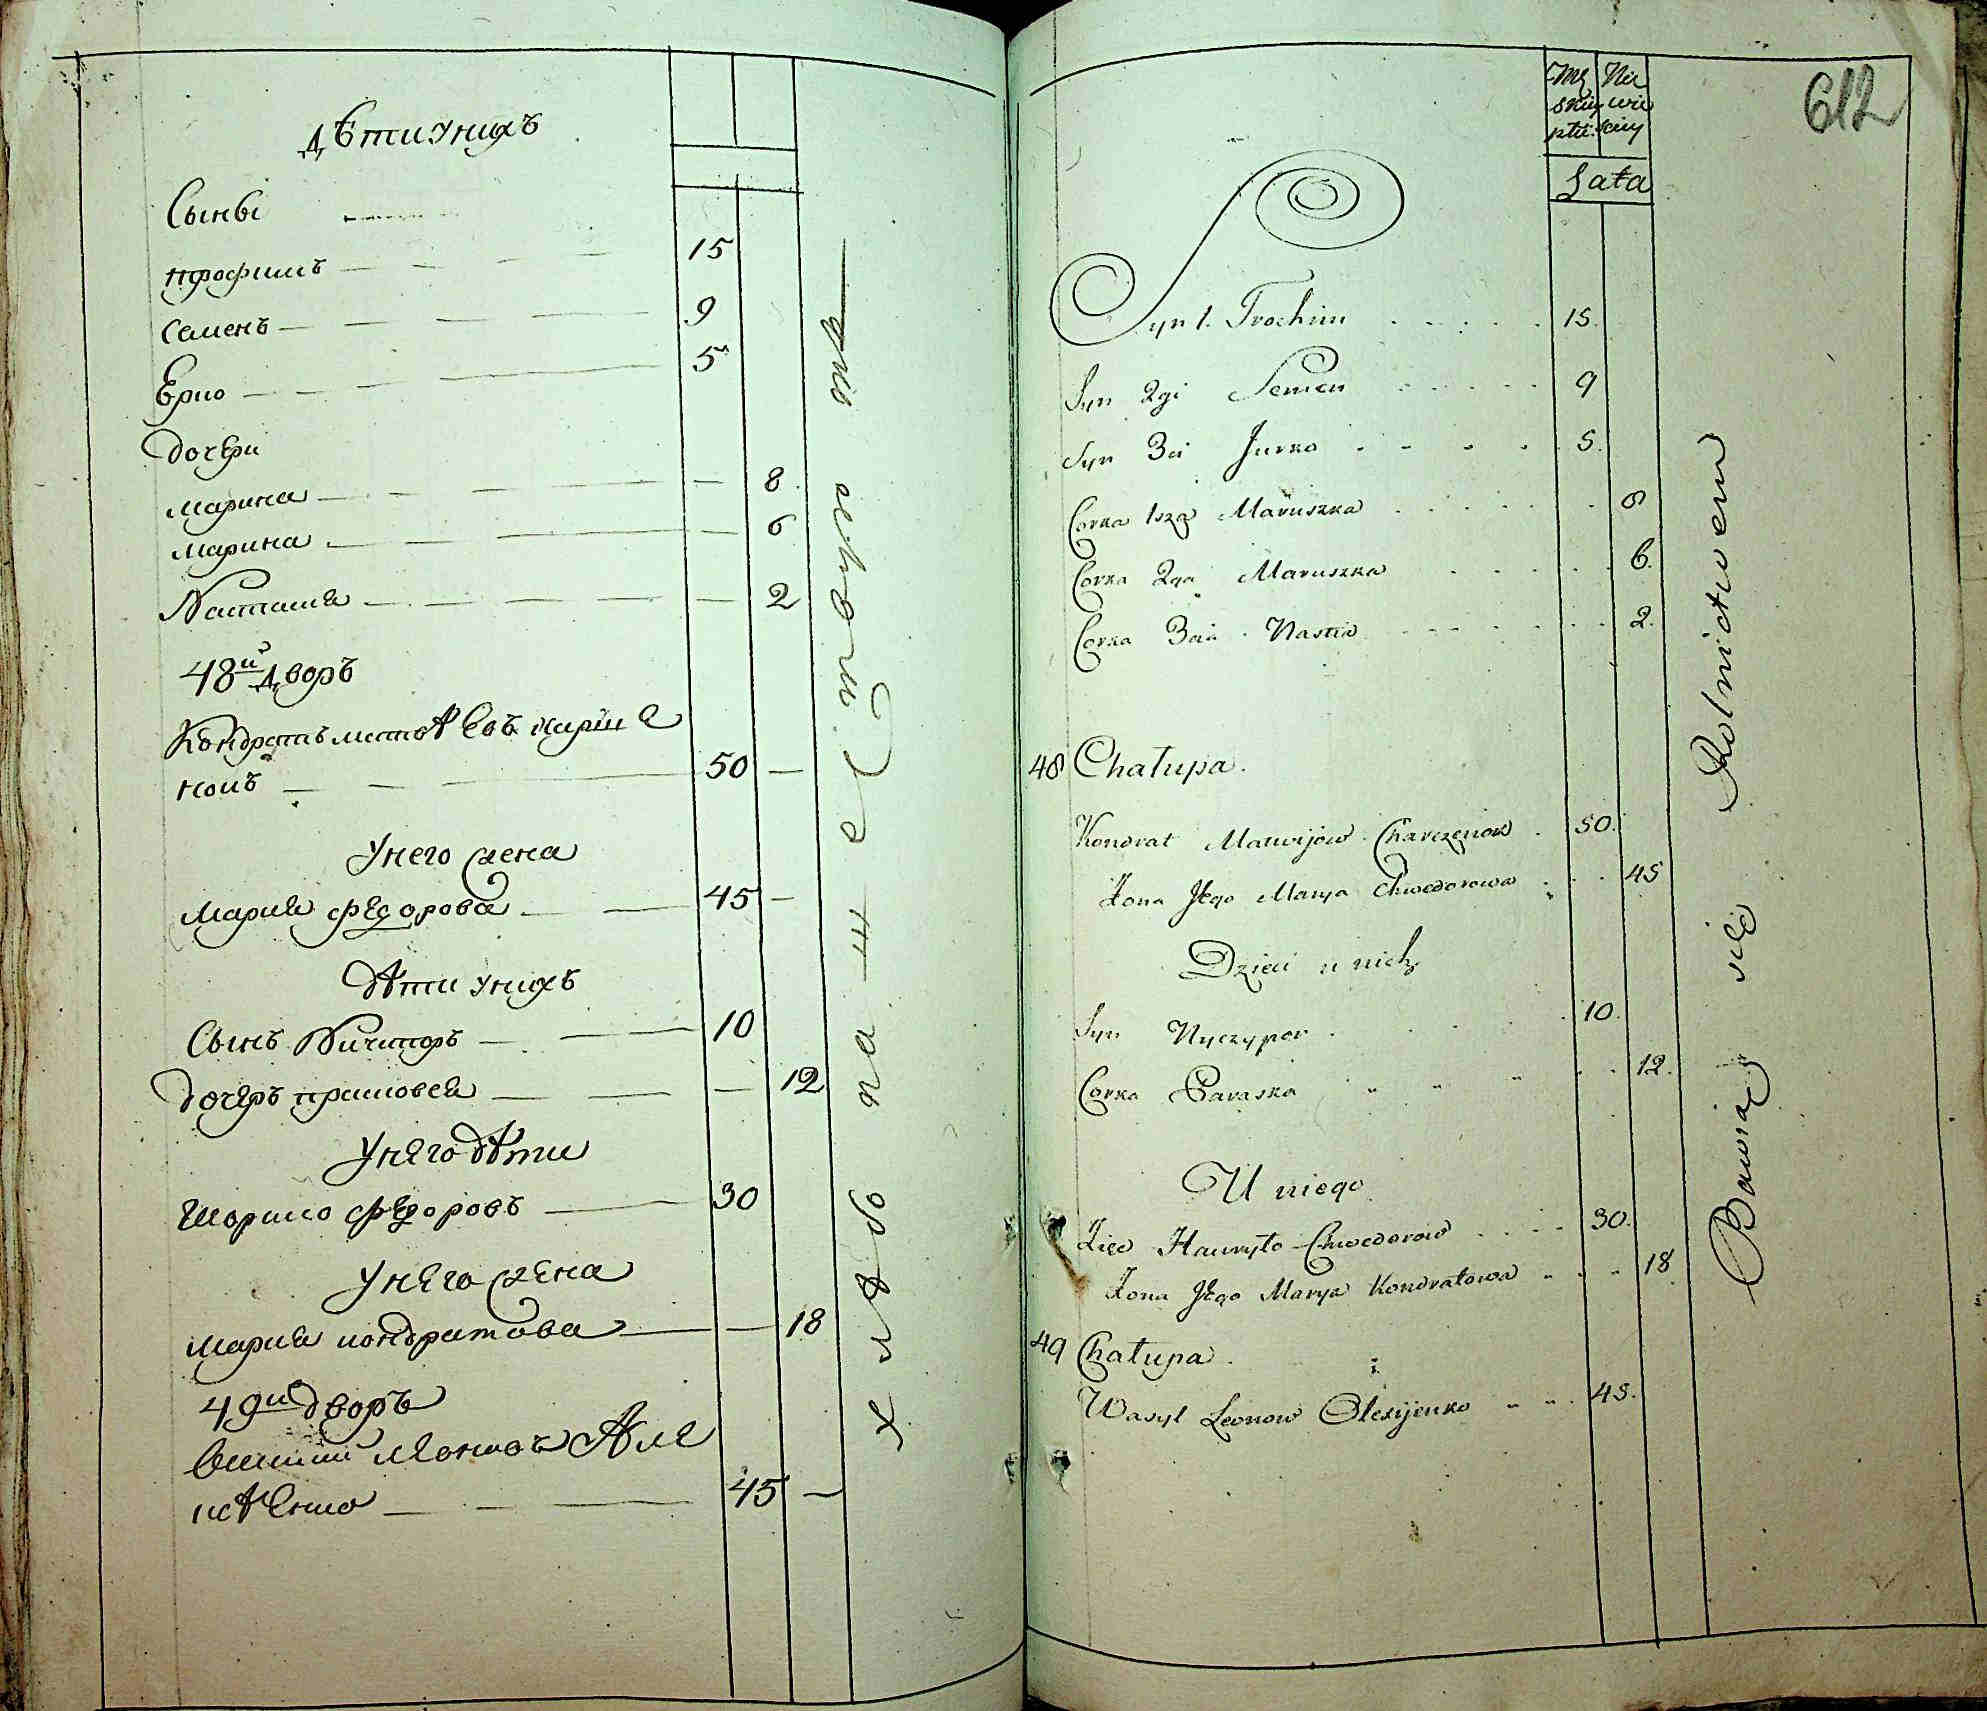 дѣти у нихъ
Сыны
трофимъ 15
семенъ 9
Ерко 5
дочери
марина 8
марина 6
Наталия 2
48й дворъ
Кондратъ матвѣевъ харче
нокъ 50 —
У него жена
Мария федорова 45 —
дѣти у нихъ
Сынъ Ничипоръ 10
дочеръ прасковея — 12
У него дѣти
федоровъ 30
У него жена
Мария кондратова — 18
49й дворъ
Василий леоновъ Але
ксѣенко 45 —
хлѣбопашествомъ
612
Mę Nie
skiey wie
płci sciey
Lata
Syn 1. Trochim 15.
Syn 2gi Semen 9
Syn 3ci Jurko 5.
Corka 1sza Maruszka 8
Corka 2ga Maruszka 6.
Corka 3cia Nastia 2.
48 Chałupa.
Kondrat Matwijow Charczenok 50.
Żona Jego Marya Chwedorowa 45
Dzieci u nich
Syn Nyczypor 10.
Corka Paraska 12.
U niego
Zięć Hawryło Chwedorow 30.
Żona Jego Marya Kondratowa 18
49 Chałupa.
Wasyl Leonow Olexijenko 45.
Bawią się Rolnictwem